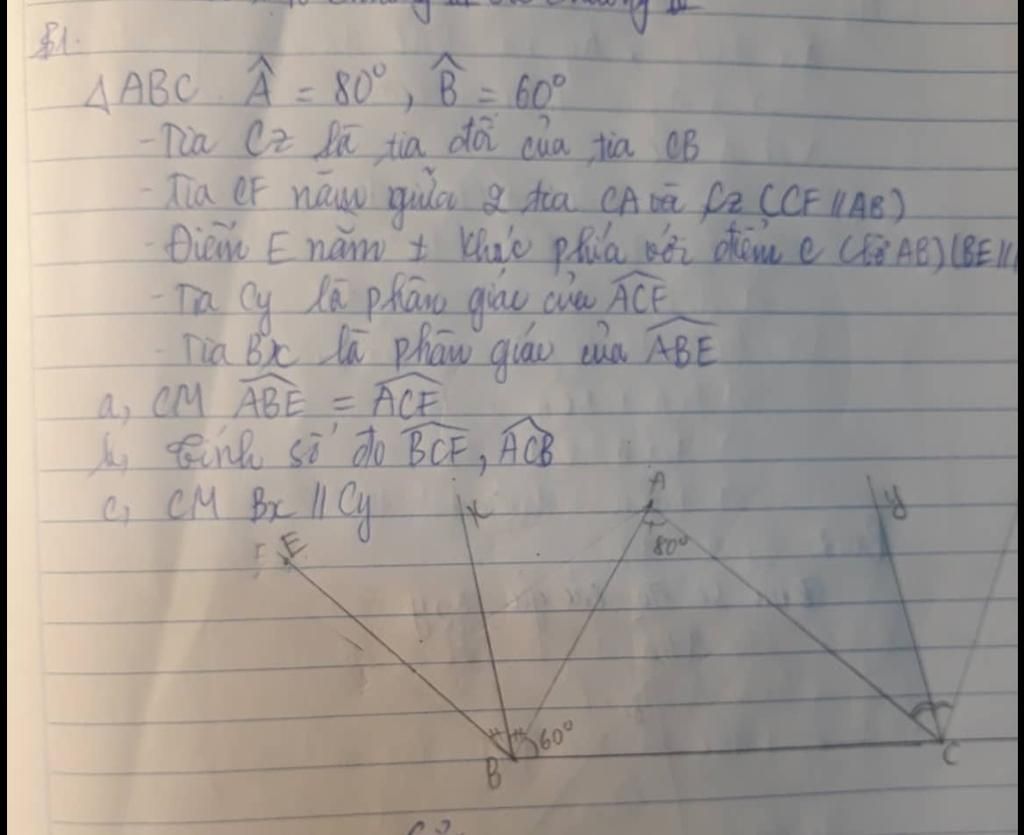 §1.
△ABC Â = 80°, B̂ = 60°
- Tia Cz là tia đối của tia CB
- Tia CF nằm giữa 2 tia CA và Cz (CF // AB)
- Điểm E nằm ≠ khác phía với điểm C (bờ AB) (BE //
- Tia Cy là phân giác của ACF
- Tia Bx là phân giác của ABE
a, CM ABE = ACF
b, tính số đo BCF, ACB
c, CM Bx // Cy
E x A y
80°
60°
B C